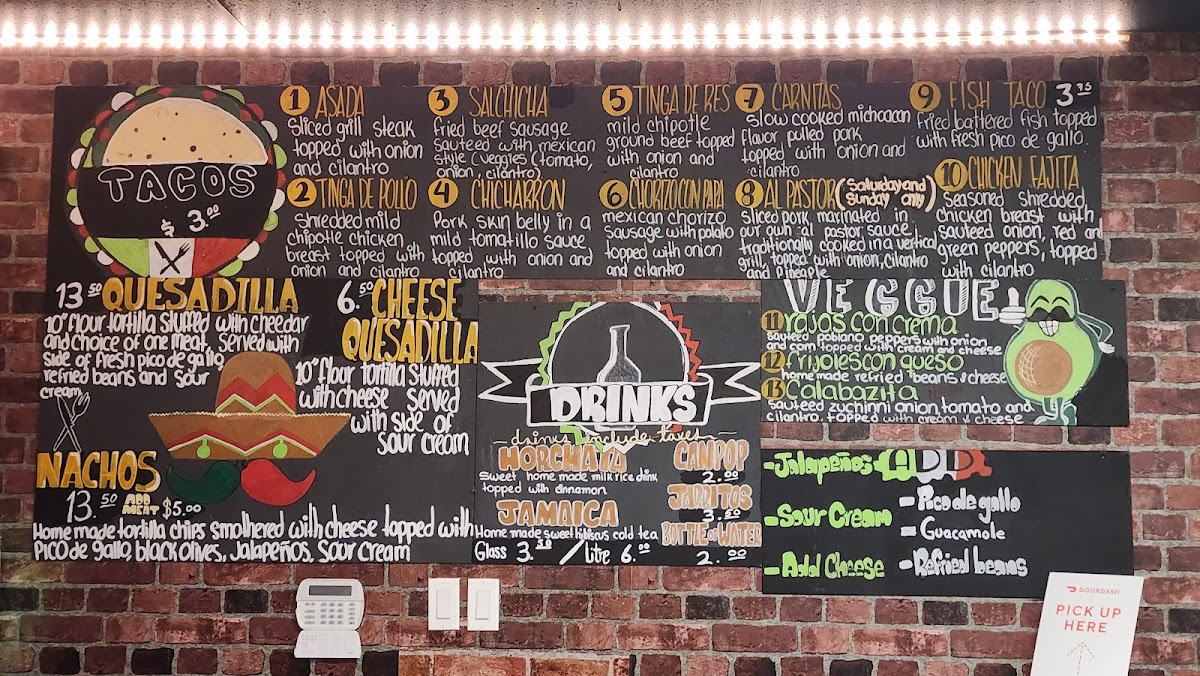 TACOS
$ 3.00
1 ASADA
Sliced grill steak
topped with onion
and cilantro
2 TINGA DE POLLO
Shredded mild
chipotle chicken
breast topped with
onion and cilantro
3 SALCHICHA
fried beef sausage
sauteed with mexican
style (veggies (tomato,
onion, cilantro)
4 CHICHARRON
Pork skin belly in a
mild tomatillo sauce
topped with onion and
cilantro
5 TINGA DE RES
mild chipotle
ground beef topped
with onion and
cilantro
6 CHORIZO CON PAPA
mexican chorizo
sausage with potato
topped with onion
and cilantro
7 CARNITAS
Slow cooked michoacan
flavor pulled pork
topped with onion and
cilantro
8 AL PASTOR (Saturday and
Sunday only)
Sliced pork, marinated in
our own al pastor sauce
traditionally cooked in a vertical
grill, topped with onion, cilantro
and pineaple
9 FISH TACO 3.75
fried battered fish topped
with fresh pico de gallo.
10 CHICKEN FAJITA
Seasoned shredded
chicken breast with
sauteed onion, red and
green peppers, topped
with cilantro
13.50 QUESADILLA
10" flour tortilla stuffed with cheedar
and choice of one meat, served with
side of fresh pico de gallo
refried beans and sour
cream
6.50 CHEESE
QUESADILLA
10" flour tortilla stuffed
with cheese served
with side of
sour cream
NACHOS
13.50 ADD
MEAT $5.00
Home made tortilla chips smothered with cheese topped with
Pico de gallo, black olives, Jalapeños, Sour Cream
DRINKS
drinks include taxes
HORCHATA
sweet home made milk rice drink
topped with cinnamon
JAMAICA
Home made sweet hibiscus cold tea
Glass 3.50 / litre 6.00
CAN POP
2.00
JARRITOS
3.50
BOTTLE of WATER
2.00
VEGGIE
11 Rajas con crema
sauteed poblano peppers with onion
and corn topped with cream and cheese
12 frijoles con queso
home made refried beans & cheese
13 Calabazita
sauteed zuchinni onion, tomato and
cilantro, topped with cream & cheese
ADD
- Jalapeños
- Sour Cream
- Add Cheese
- Pico de gallo
- Guacamole
- Refried beans
DOORDASH
PICK UP
HERE